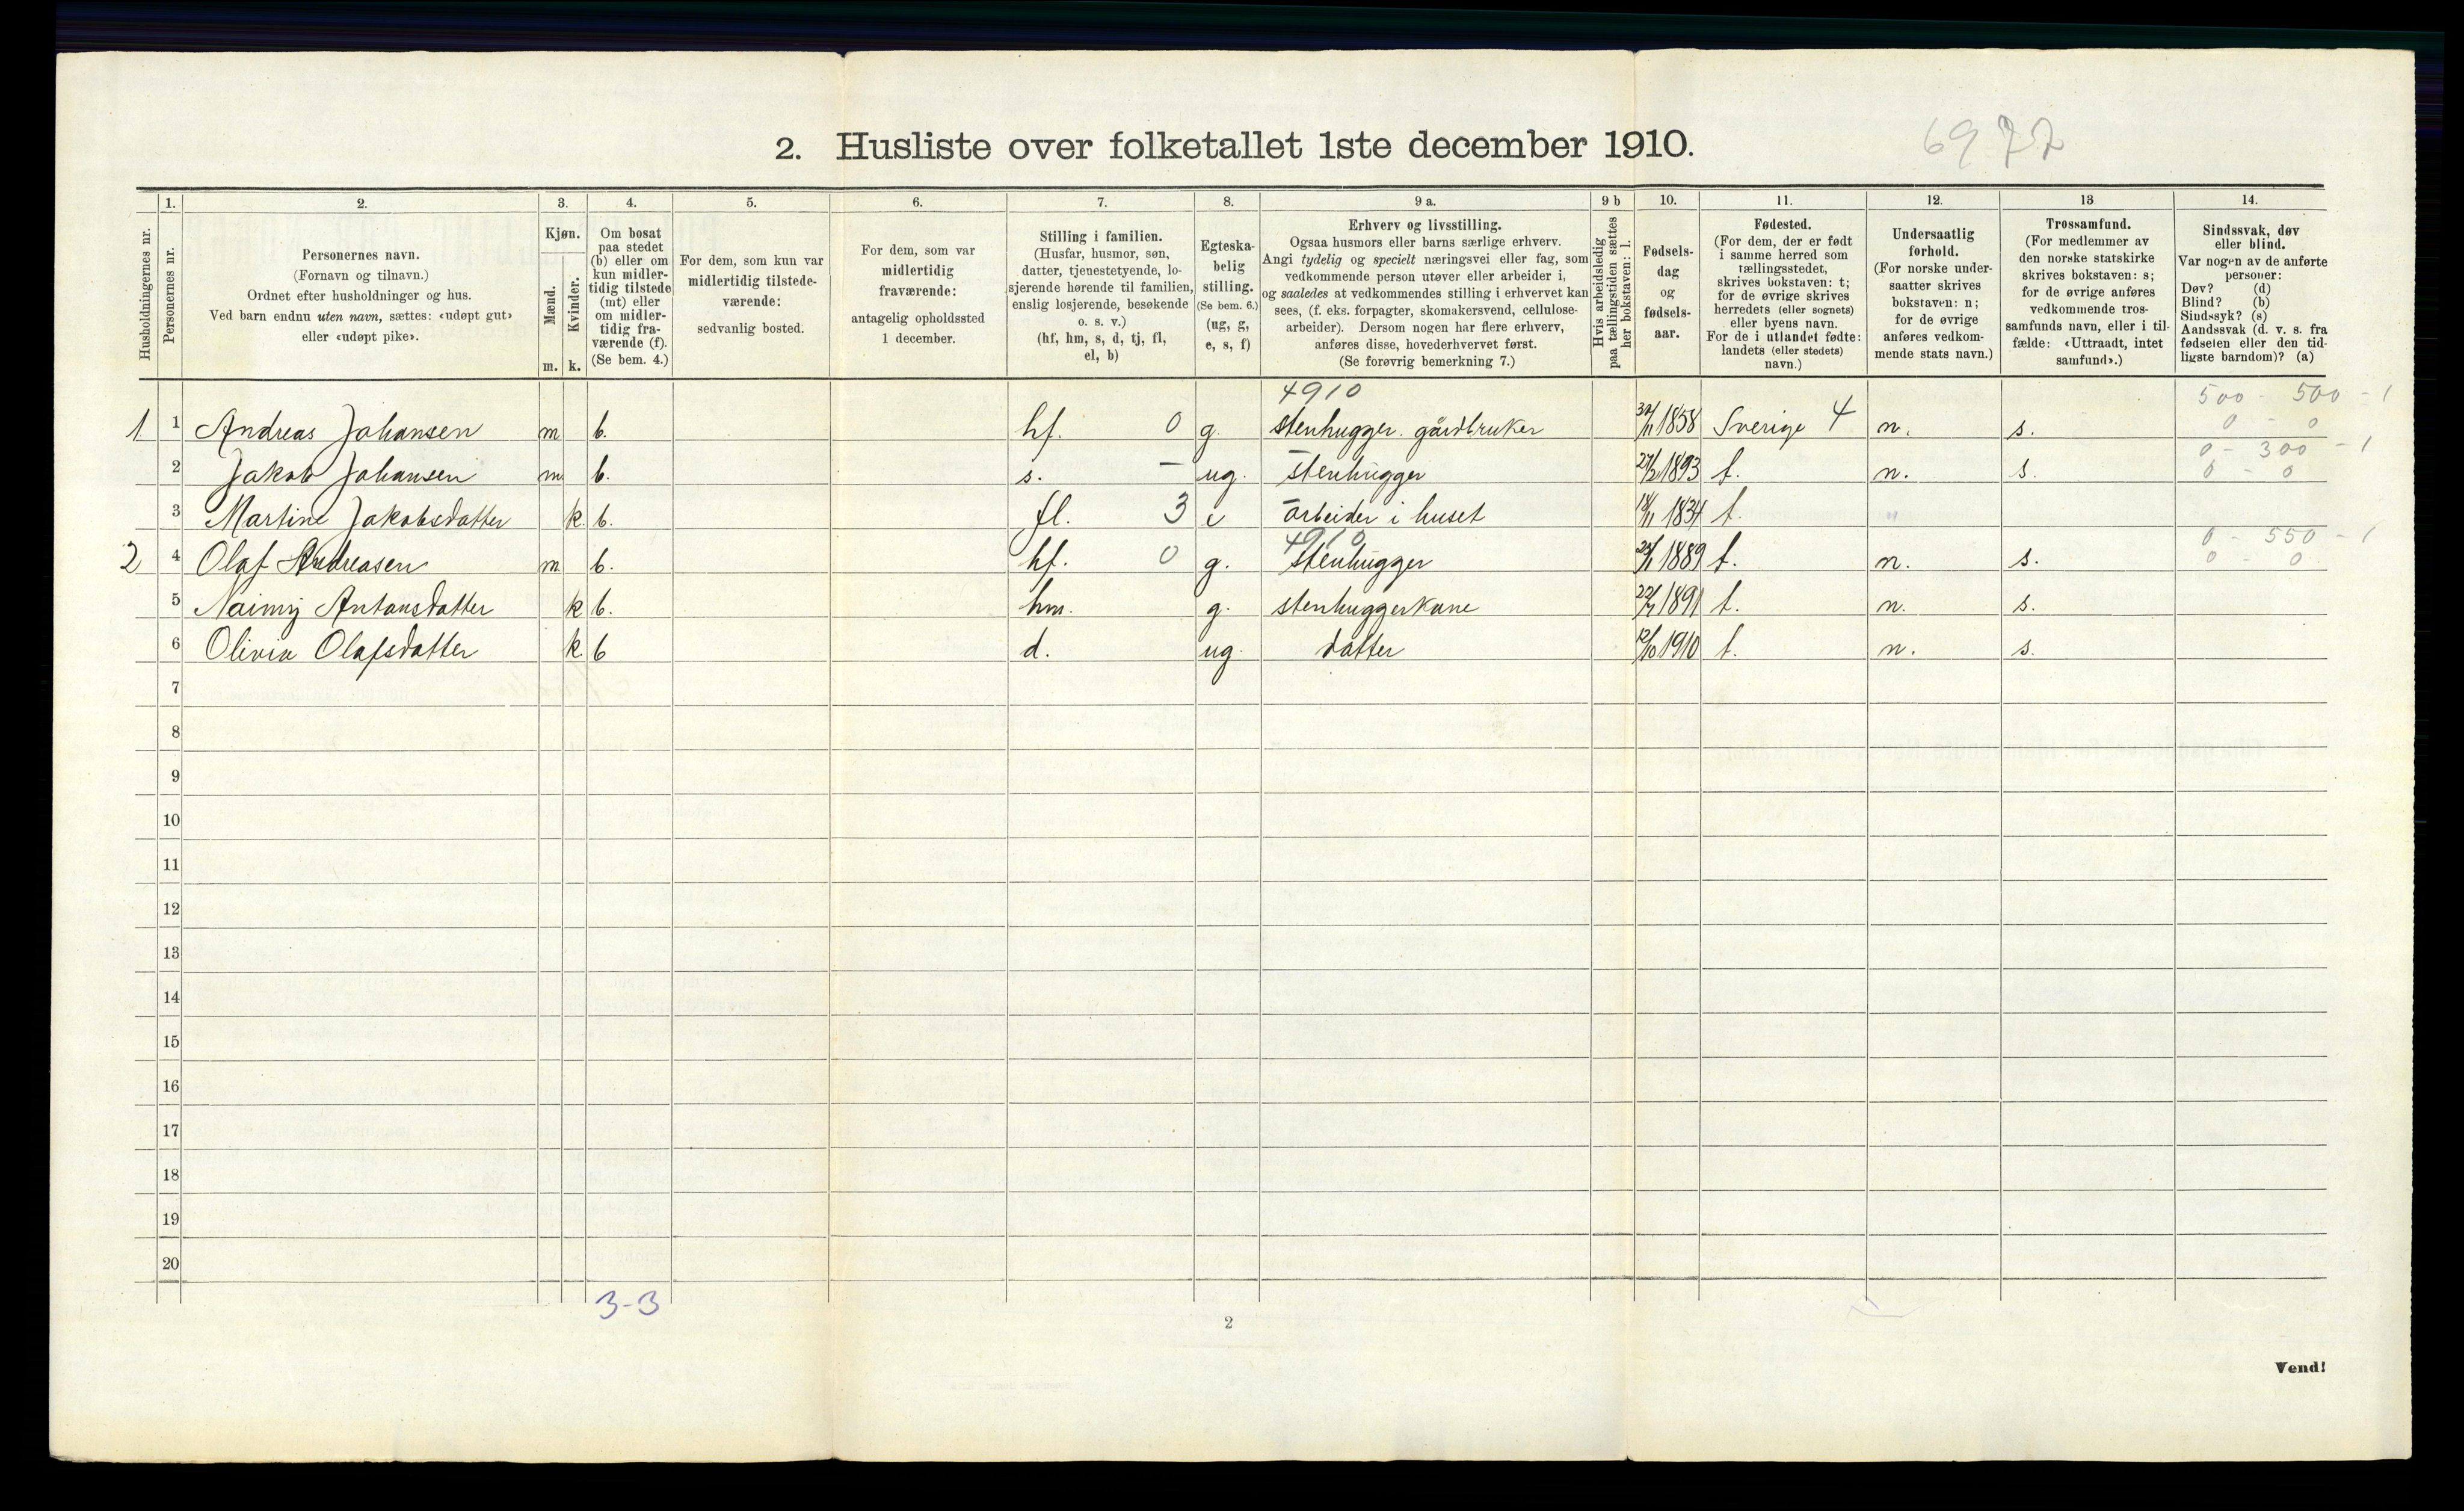 2. Husliste over folketallet 1ste december 1910.
6977
Husholdningernes nr.
1.
Personernes nr.
2.
Personernes navn.
(Fornavn og tilnavn.)
Ordnet efter husholdninger og hus.
Ved barn endnu uten navn, sættes: «udøpt gut»
eller «udøpt pike».
3.
Kjøn.
Mænd.
Kvinder.
m. k.
4.
Om bosat
paa stedet
(b) eller om
kun midler-
tidig tilstede
(mt) eller
om midler-
tidig fra-
værende (f).
(Se bem. 4.)
5.
For dem, som kun var
midlertidig tilstede-
værende:
sedvanlig bosted.
6.
For dem, som var
midlertidig
fraværende:
antagelig opholdssted
1 december.
7.
Stilling i familien.
(Husfar, husmor, søn,
datter, tjenestetyende, lo-
sjerende hørende til familien,
enslig losjerende, besøkende
o. s. v.)
(hf, hm, s, d, tj, fl,
el, b)
8.
Egteska-
belig
stilling.
(Se bem. 6.)
(ug, g,
e, s, f)
9 a.
Erhverv og livsstilling.
Ogsaa husmors eller barns særlige erhverv.
Angi tydelig og specielt næringsvei eller fag, som
vedkommende person utøver eller arbeider i,
og saaledes at vedkommendes stilling i erhvervet kan
sees, (f. eks. forpagter, skomakersvend, cellulose-
arbeider). Dersom nogen har flere erhverv,
anføres disse, hovederhvervet først.
(Se forøvrig bemerkning 7.)
9 b
Hvis arbeidsledig
paa tællingstiden sættes
her bokstaven: l.
10.
Fødsels-
dag
og
fødsels-
aar.
11.
Fødested.
(For dem, der er født
i samme herred som
tællingsstedet,
skrives bokstaven: t;
for de øvrige skrives
herredets (eller sognets)
eller byens navn.
For de i utlandet fødte:
landets (eller stedets)
navn.)
12.
Undersaatlig
forhold.
(For norske under-
saatter skrives
bokstaven: n;
for de øvrige
anføres vedkom-
mende stats navn.)
13
Trossamfund.
(For medlemmer av
den norske statskirke
skrives bokstaven: s;
for de øvrige anføres
vedkommende tros-
samfunds navn, eller i til-
fælde: «Uttraadt, intet
samfund».)
14.
Sindssvak, døv
eller blind.
Var nogen av de anførte
personer:
Døv? (d)
Blind? (b)
Sindssyk? (s)
Aandssvak (d. v. s. fra
fødselen eller den tid-
ligste barndom)? (a)
4910 500 - 500 - 1
1 1 Andreas Johansen m b. hf. 0 g. stenhugger. gårdbruker 30/11 1858 Sverige 4 n. s. 0 - 0
0 - 300 - 1
2 Jakob Johansen m b. s. - ug. stenhugger 27/2 1893 t. n. s. 0 - 0
3 Martine Jakobsdatter k. b. fl. 3 e arbeider i huset 18/11 1834 t.
4910 0 - 550 - 1
2 4 Olaf Andreasen m b. hf. 0 g. stenhugger 25/1 1889 t. n. s. 0 - 0
5 Naimy Antonsdatter k b. hm. g. stenhuggerkone 22/7 1891 t. n. s.
6 Olivia Olafsdatter k. b d. ug. datter 12/10 1910 t. n. s.
7
8
9
10
11
12
13
14
15
16
17
18
19
20
3-3
2
Vend!